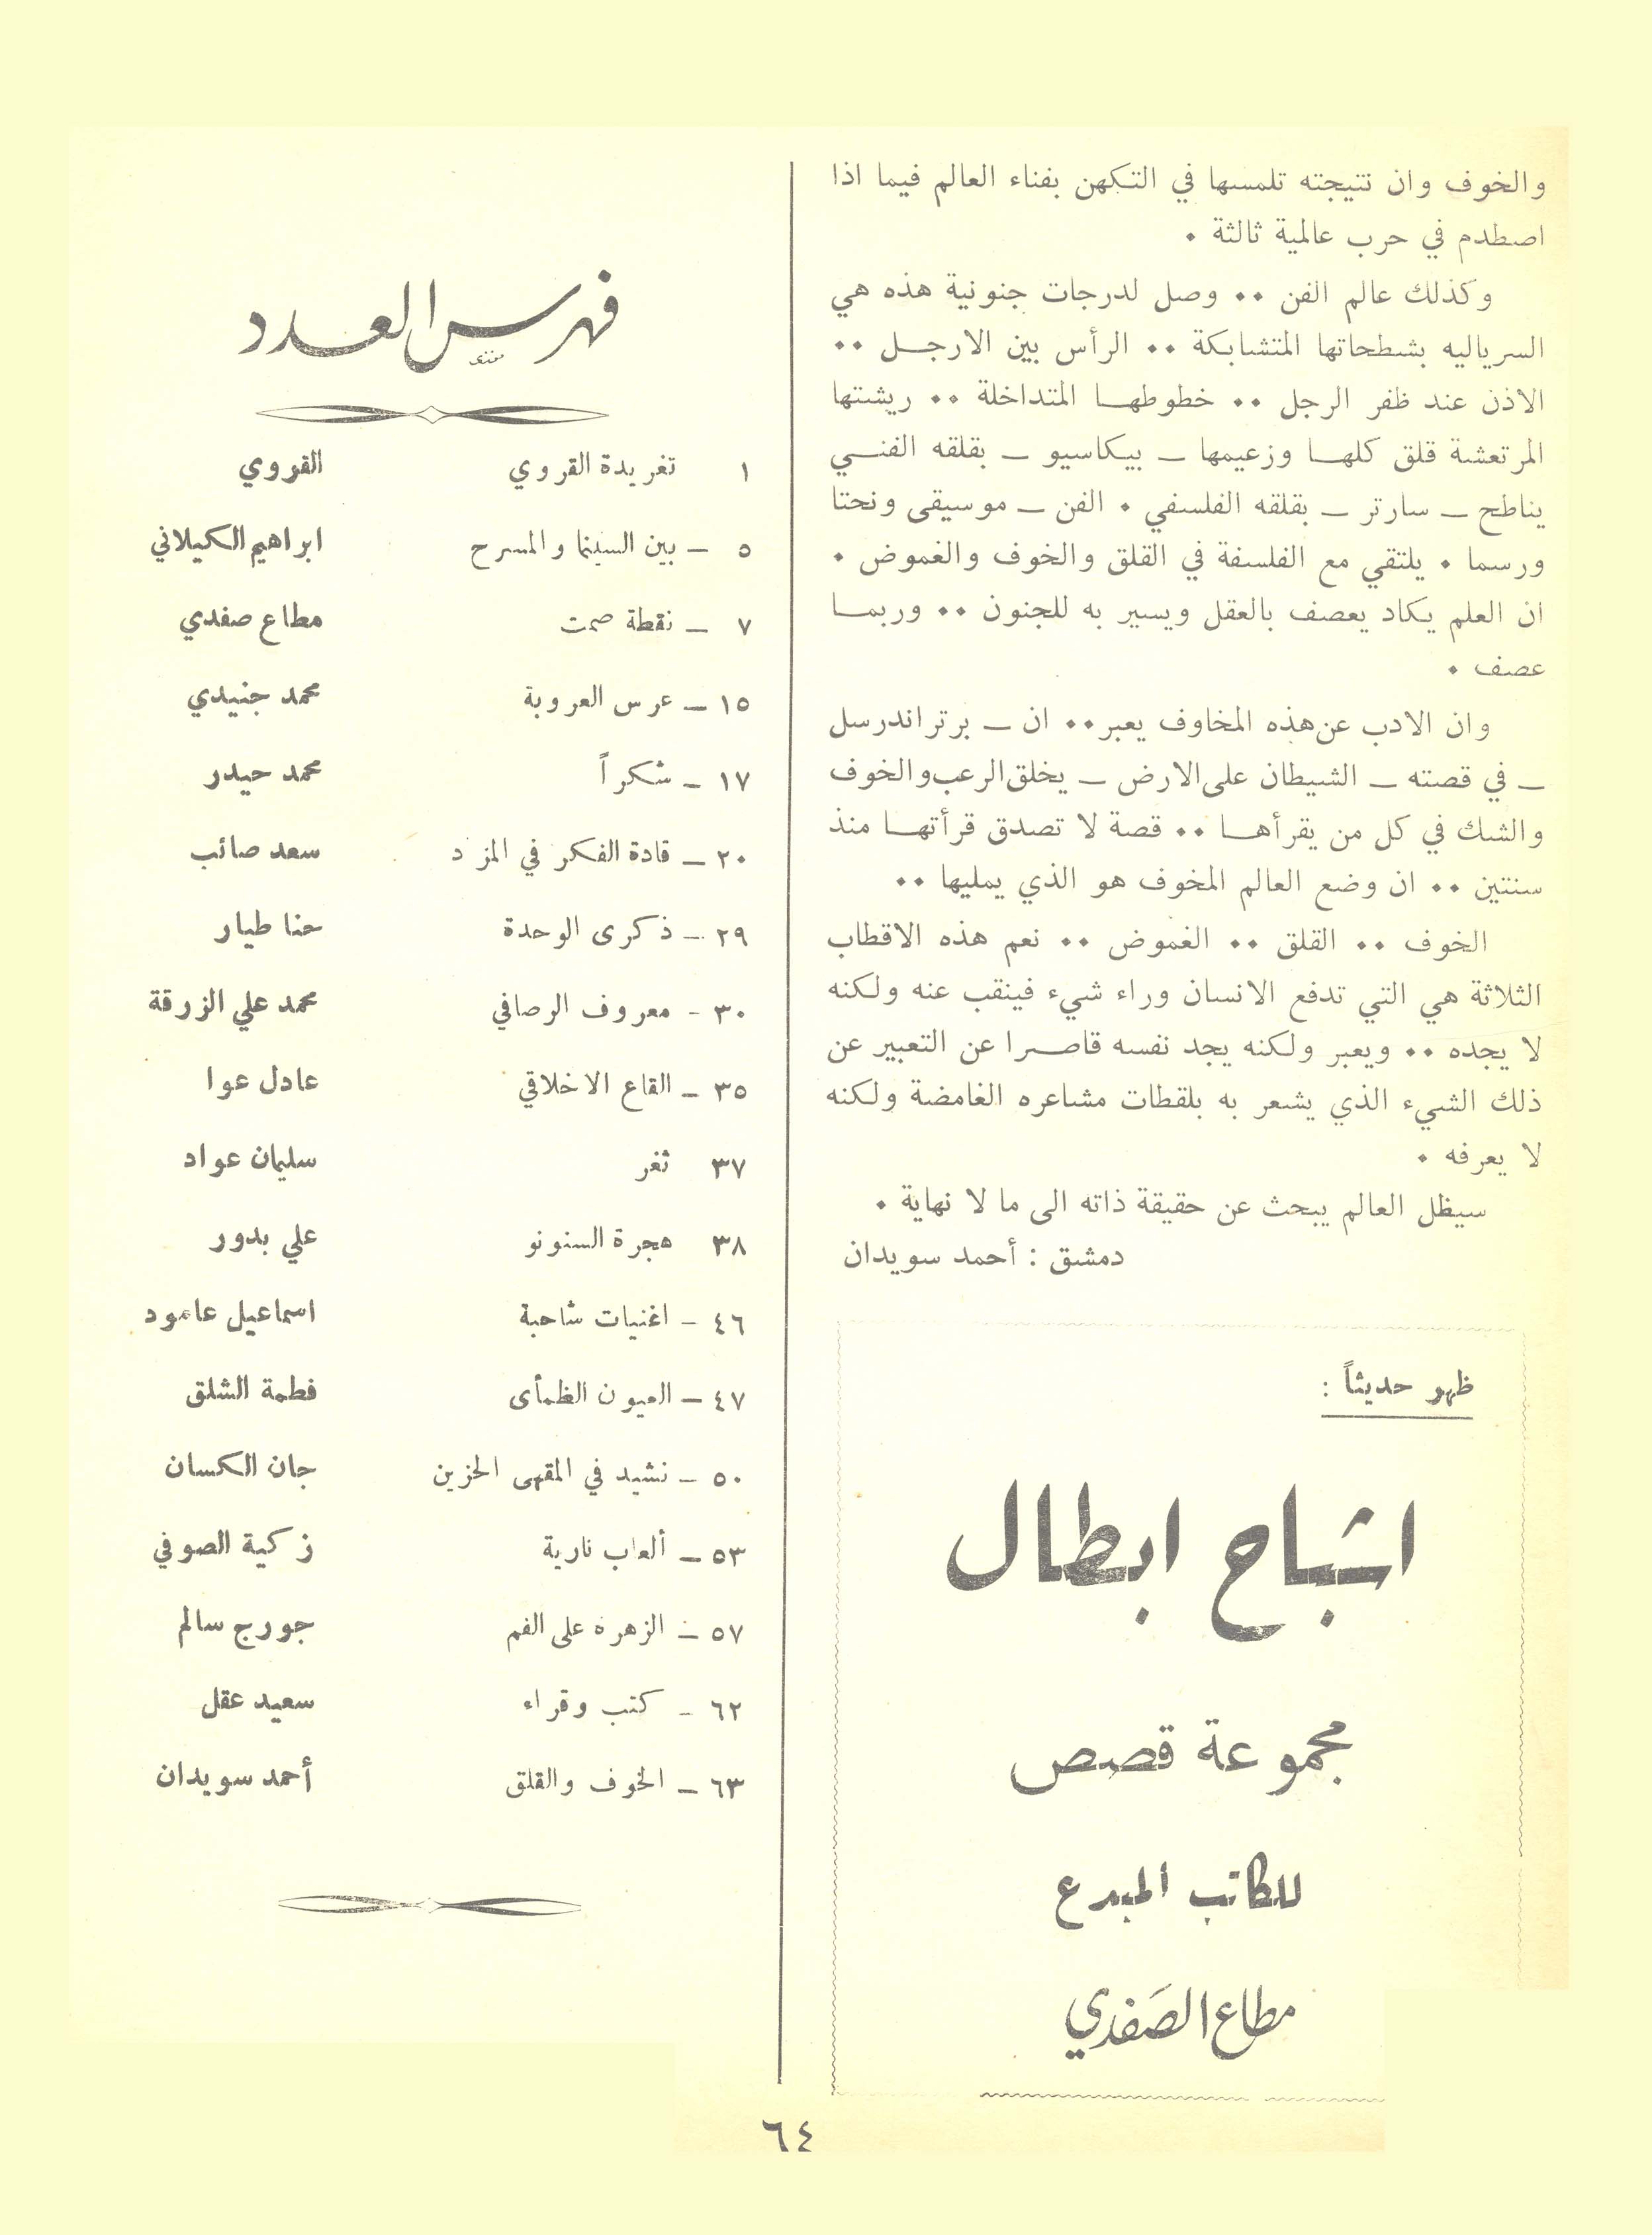 والخوف وان نتيجته تلمسها في التكهن بفناء العالم فيما اذا
اصطدم في حرب عالمية ثالثة .
وكذلك عالم الفن .. وصل لدرجات جنونية هذه هي
السرياليه بشطحاتها المتشابكة .. الرأس بين الارجل ..
الاذن عند ظفر الرجل .. خطوطها المتداخلة .. ريشتها
المرتعشة قلق كلها وزعيمها – بيكاسيو – بقلقه الفني
يناطح – سارتر – بقلقه الفلسفي . الفن – موسيقى ونحتا
ورسما . يلتقي مع الفلسفة في القلق والخوف والغموض .
ان العلم يكاد يعصف بالعقل ويسير به للجنون .. وربما
عصف .
وان الادب عن هذه المخاوف يعبر .. ان – برتراندرسل
– في قصته – الشيطان على الارض – يخلق الرعب والخوف
والشك في كل من يقرأها .. قصة لا تصدق قرأتها منذ
سنتين .. ان وضع العالم المخوف هو الذي يمليها ..
الخوف .. القلق .. الغموض .. نعم هذه الاقطاب
الثلاثة هي التي تدفع الانسان وراء شيء فينقب عنه ولكنه
لا يجده .. ويعبر ولكنه يجد نفسه قاصرا عن التعبير عن
ذلك الشيء الذي يشعر به بلقطات مشاعره الغامضة ولكنه
لا يعرفه .
سيظل العالم يبحث عن حقيقة ذاته الى ما لا نهاية .
دمشق : أحمد سويدان
ظهر حديثاً :
اشباح ابطال
مجموعة قصص
للكاتب المبدع
مطاع الصَفدي
فهرس العدد
١ تغريدة القروي القروي
٥ – بين السينما والمسرح ابراهيم الكيلاني
٧ – نقطة صمت مطاع صفدي
١٥ – عرس العروبة محمد جنيدي
١٧ – شكراً محمد حيدر
٢٠ – قادة الفكر في المزاد سعد صائب
٢٩ – ذكرى الوحدة حنا طيار
٣٠ - معروف الرصافي محمد علي الزرقة
٣٥ – القاع الاخلاقي عادل عوا
٣٧ ثغر سليمان عواد
٣٨ هجرة السنونو علي بدور
٤٦ – اغنيات شاحبة اسماعيل عامود
٤٧ – العيون الظمأى فطمة الشلق
٥٠ – نشيد في المقهى الحزين جان الكسان
٥٣ – ألعاب نارية زكية الصوفي
٥٧ – الزهرة على الفم جورج سالم
٦٢ - كتب وقراء سعيد عقل
٦٣ – الخوف والقلق أحمد سويدان
٦٤